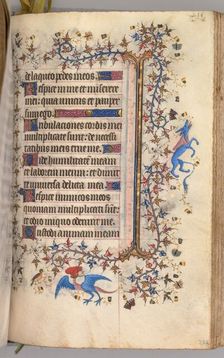 de laqueo pedes meos.
Respice in me et miserere
mei: quia unicus et pauper
sum ego.
Tribulaciones cordis mei
multiplicate sunt: de necessi
tatibus meis erue me.
Vide humilitatem meam
et laborem meum: et dimit
te universa delicta mea.
Respice inimicos meos
quoniam multiplicati sunt:
et odio iniquo oderunt me.
Custodi animam meam